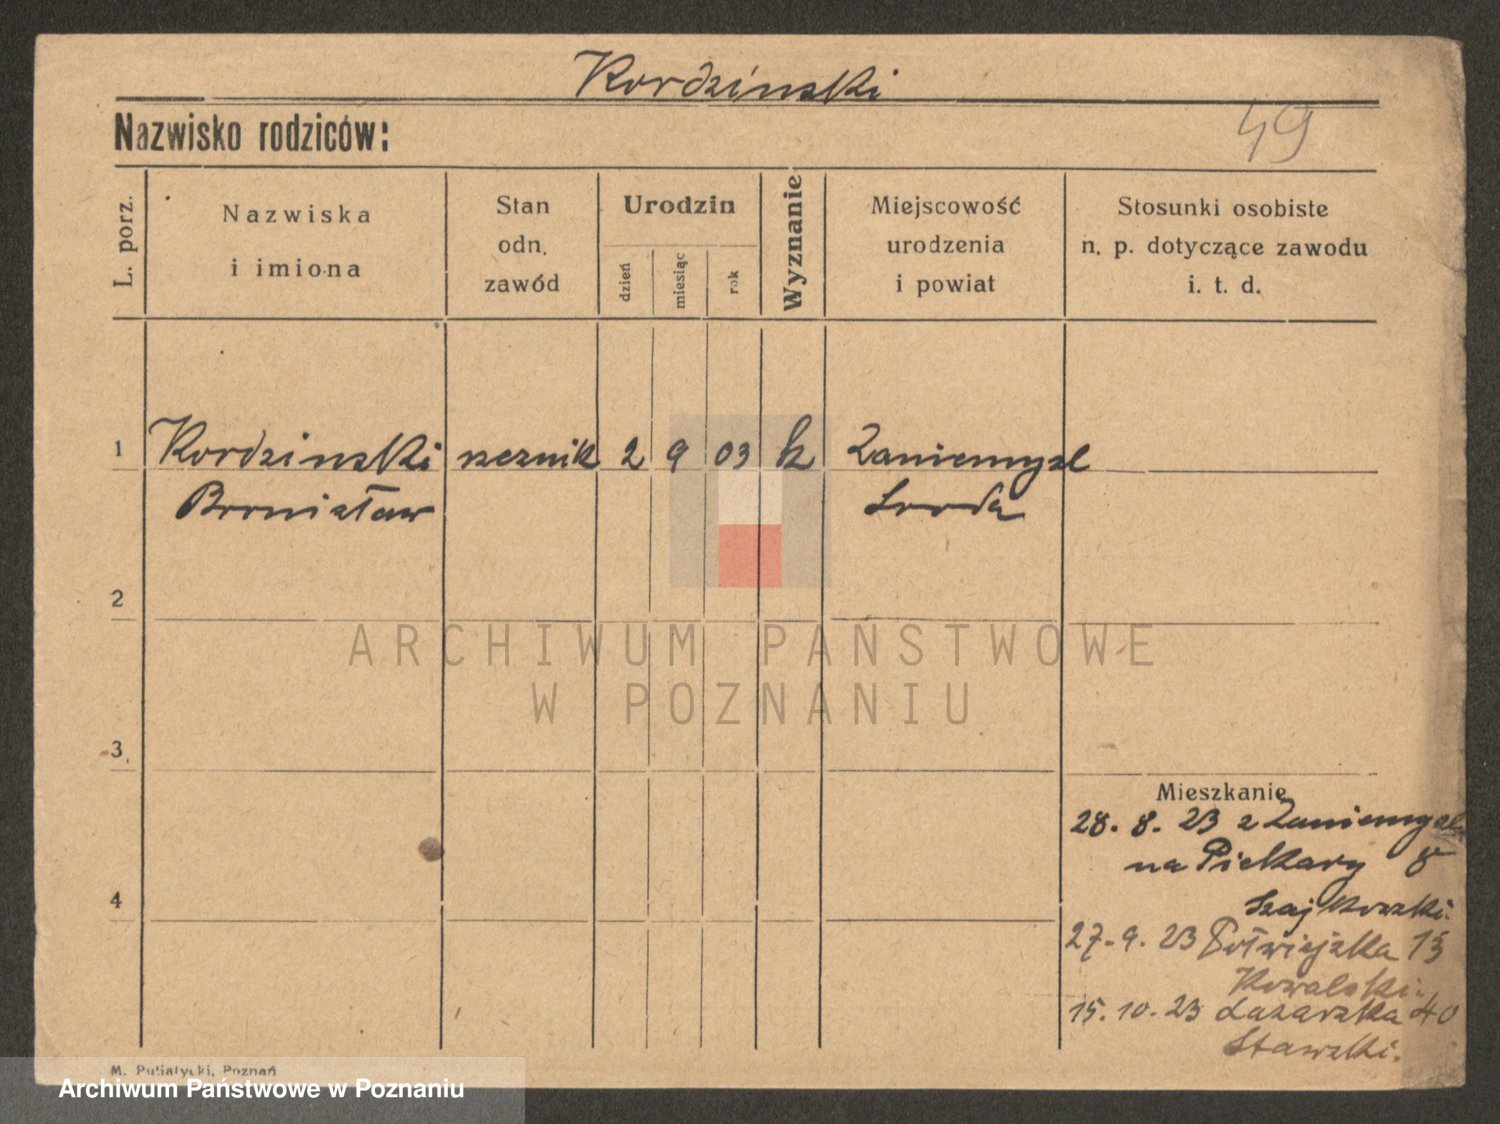 Kordzinski
Nazwisko rodziców:
49
L. porz.
Nazwiska
i imiona
Stan
odn.
zawód
Urodzin
dzień
miesiąc
rok
Wyznanie
Miejscowość
urodzenia
i powiat
Stosunki osobiste
n. p. dotyczące zawodu
i. t. d.
1 Kordzinski rzeznik 2 9 03 k Zaniemysl
Bronisław Sroda
2
ARCHIWUM PAŃSTWOWE
W POZNANIU
3
Mieszkanie
28. 8. 23 z Zaniemysl
na Piekary 8
Szajkowski.
4
27. 9. 23 Półwiejska 15
Kowalski.
15. 10. 23 Łazarska 40
Stawski.
M. Putiatycki, Poznań
Archiwum Państwowe w Poznaniu